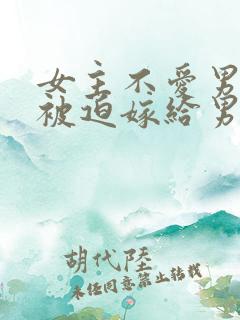 女主不爱男
被迫嫁给男
胡代陸
未经同意禁止转载